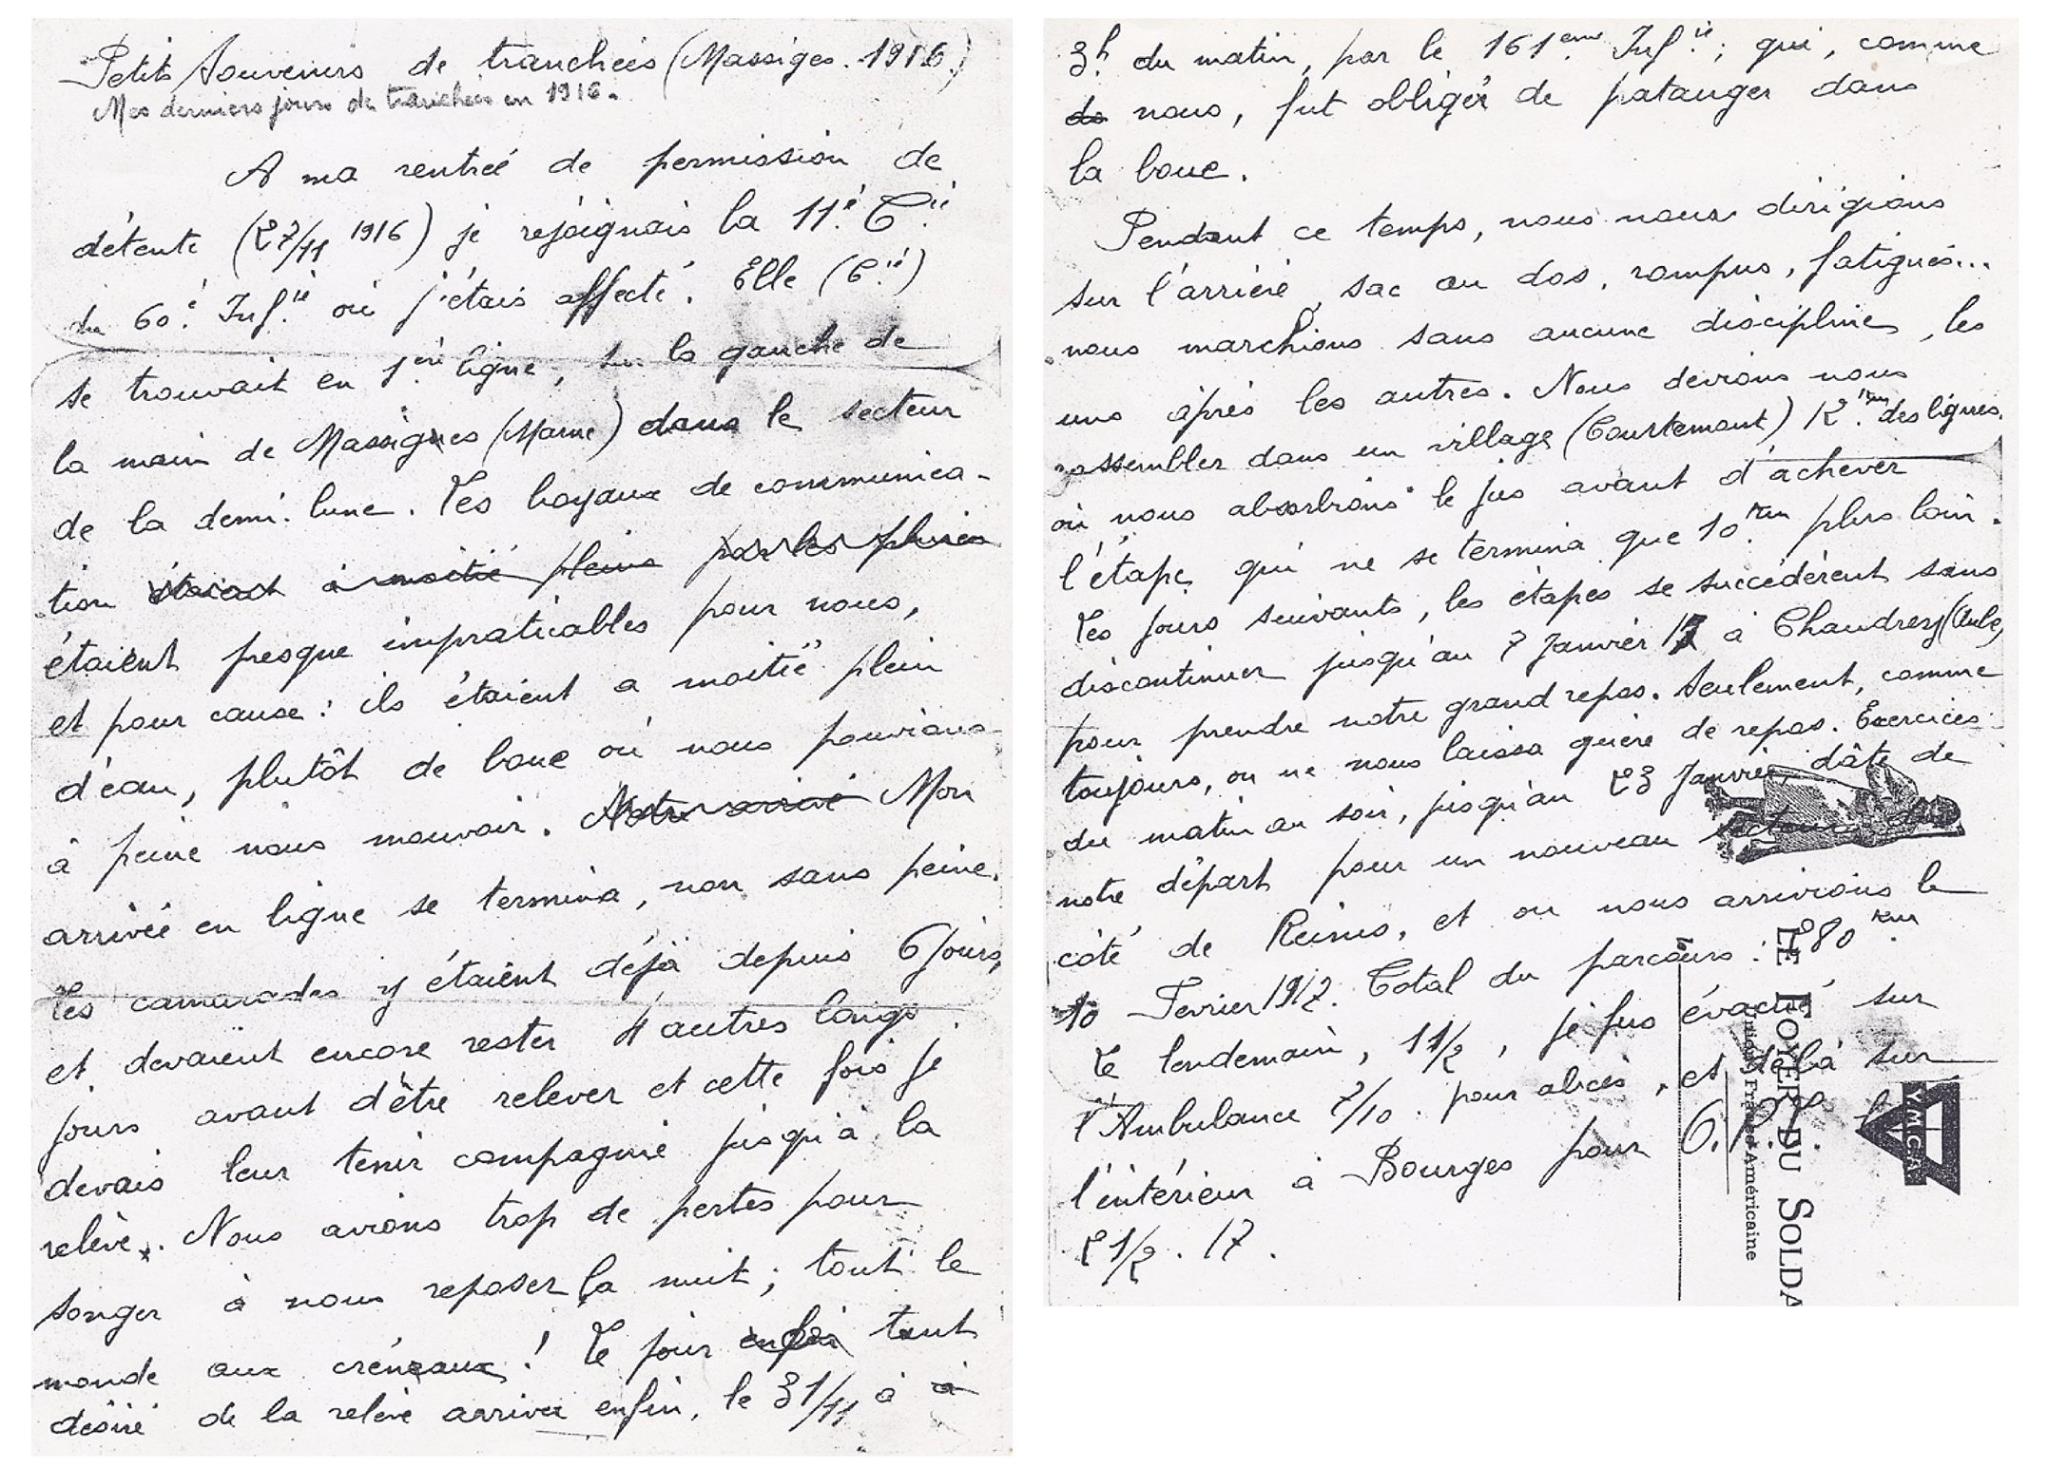 Petits Souvenirs de tranchées (Massiges. 1916.)
Mes derniers jours de tranchées en 1916.
A ma rentrée de permission de
détente (27/11 1916) je rejoignais la 11.è Cie
du 60.è Inf.ie où j'étais affecté. Elle (Cie)
se trouvait en 1ère ligne, sur la gauche de
la main de Massiges (Marne) dans le secteur
de la demi-lune. Les boyaux de communica-
tion étaient à moitié pleins par les pluies
étaient presque impraticables pour nous,
et pour cause : ils étaient a moitié plein
d'eau, plutôt de boue où nous pouvions
à peine nous mouvoir. Notre arrivé Mon
arrivée en ligne se termina, non sans peine.
Les camarades y étaient déjà depuis 6 jours,
et devaient encore rester 4 autres longs
jours avant d'être relever et cette fois je
devais leur tenir compagnie jusqu'à la
relève. Nous avions trop de pertes pour
songer à nous reposer la nuit ; tout le
monde aux créneaux ! Le jour enfin tant
désiré de la relève arriva enfin, le 31/11 à à
3h du matin, par le 161eme Inf.ie ; qui, comme
de nous, fut obligé de patauger dans
la boue.
Pendant ce temps, nous nous dirigions
sur l'arrière, sac au dos, rompus, fatigués...
nous marchions sans aucune discipline, les
uns après les autres. Nous devions nous
rassembler dans un village (Courtemont) 12 km des lignes.
où nous absorbions le jus avant d'achever
l'étape qui ne se termina que 10 km plus loin.
Les jours suivants, les étapes se succédèrent sans
discontinuer jusqu'au 7 Janvier 17 à Chaudrey (Aube)
pour prendre notre grand repos. Seulement, comme
toujours, on ne nous laissa guère de repos. Exercices
du matin au soir, jusqu'au 23 Janvier, dâte de
notre départ pour un nouveau secteur du
côté de Reims, et où nous arrivions le
10 Fevrier 1917. Total du parcours : 280 km.
Le lendemain, 11/2, je fus évacué sur
l'Ambulance 7/10 pour abcès, et delà sur
l'intérieur à Bourges pour
21/2.17.
LE FOYER DU SOLDA
Union Franco-Américaine
YMCA